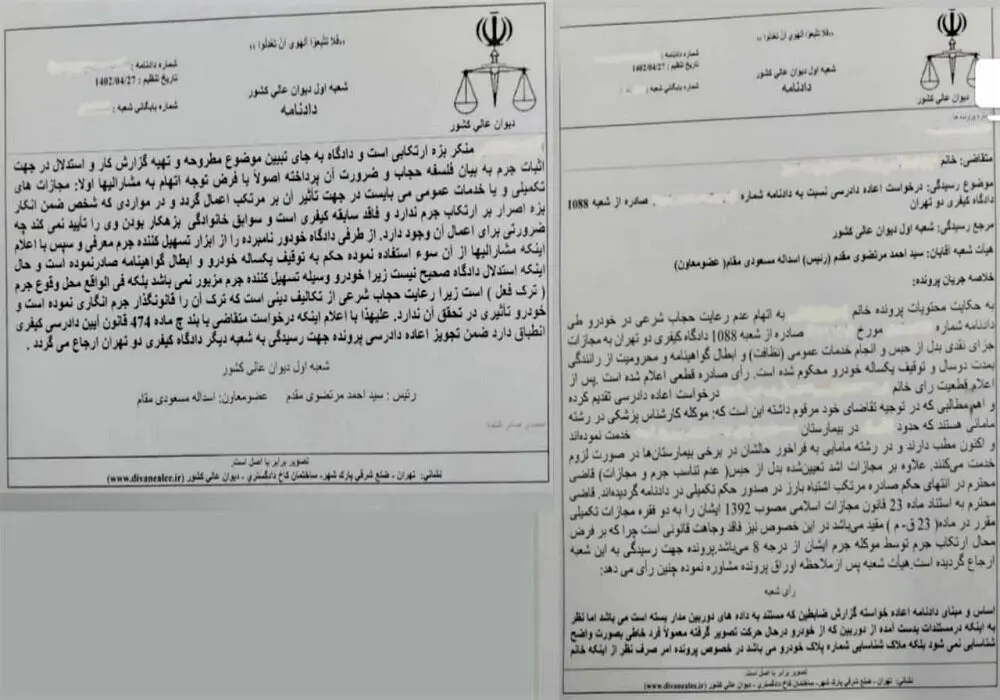 «فلا تتبعوا الهوی ان تعدلوا»
شماره دادنامه :
تاریخ تنظیم : 1402/04/27
شماره بایگانی شعبه :
شعبه اول دیوان عالی کشور
دادنامه
دیوان عالی کشور
متقاضی: خانم
موضوع رسیدگی: درخواست اعاده دادرسی نسبت به دادنامه شماره صادره از شعبه 1088
دادگاه کیفری دو تهران
مرجع رسیدگی: شعبه اول دیوان عالی کشور
هیأت شعبه آقایان: سید احمد مرتضوی مقدم (رئیس) اسداله مسعودی مقام( عضومعاون)
خلاصه جریان پرونده:
به حکایت محتویات پرونده خانم به اتهام عدم رعایت حجاب شرعی در خودرو طی
دادنامه شماره مورخ صادره از شعبه 1088 دادگاه کیفری دو تهران به مجازات
جزای نقدی بدل از حبس و انجام خدمات عمومی (نظافت) و ابطال گواهینامه و محرومیت از رانندگی
بمدت دوسال و توقیف یکساله خودرو محکوم شده است. رأی صادره قطعی اعلام شده است .پس از
اعلام قطعیت رای خانم درخواست اعاده دادرسی تقدیم کرده
و اهم مطالبی که در توجیه تقاضای خود مرقوم داشته این است که: موکله کارشناس پزشکی در رشته
مامائی هستند که حدود در بیمارستان خدمت نموده‌اند
و اکنون مطب دارند و در رشته مامایی به فراخور حالشان در برخی بیمارستان‌ها در صورت لزوم
خدمت می‌کنند. علاوه بر مجازات اشد تعیین‌شده بدل از حبس( عدم تناسب جرم و مجازات) قاضی
محترم در انتهای حکم صادره مرتکب اشتباه بارز در صدور حکم تکمیلی در دادنامه گردیده‌اند. قاضی
محترم به استناد ماده 23 قانون مجازات اسلامی مصوب 1392 ایشان را به دو فقره مجازات تکمیلی
مقرر در ماده( 23 ق- م ) مقید می‌باشد در این خصوص نیز فاقد وجاهت قانونی است چرا که بر فرض
محال ارتکاب جرم توسط موکله جرم ایشان از درجه 8 می‌باشد.پرونده جهت رسیدگی به این شعبه
ارجاع گردیده است.هیأت شعبه پس ازملاحظه اوراق پرونده مشاوره نموده چنین رأی می دهد:
رأی شعبه
اساس و مبنای دادنامه اعاده خواسته گزارش ضابطین که مستند به داده های دوربین مدار بسته است می باشد اما نظر
به اینکه درمستندات بدست آمده از دوربین که از خودرو درحال حرکت تصویر گرفته معمولاً فرد خاطی بصورت واضح
شناسایی نمی شود بلکه ملاک شناسایی شماره پلاک خودرو می باشد در خصوص پرونده امر صرف نظر از اینکه خانم
تصویر برابر با اصل است.
نشانی: تهران - ضلع شرقی پارک شهر- ساختمان کاخ دادگستری - دیوان عالی کشور (www.divanealee.ir)
«فلا تتبعوا الهوی ان تعدلوا»
شماره دادنامه :
تاریخ تنظیم : 1402/04/27
شماره بایگانی شعبه :
شعبه اول دیوان عالی کشور
دادنامه
دیوان عالی کشور
منکر بزه ارتکابی است و دادگاه به جای تبیین موضوع مطروحه و تهیه گزارش کار و استدلال در جهت
اثبات جرم به بیان فلسفه حجاب و ضرورت آن پرداخته اصولاً با فرض توجه اتهام به مشارالیها اولا: مجازات های
تکمیلی و یا خدمات عمومی می بایست در جهت تأثیر آن بر مرتکب اعمال گردد و در مواردی که شخص ضمن انکار
بزه اصرار بر ارتکاب جرم ندارد و فاقد سابقه کیفری است و سوابق خانوادگی بزهکار بودن وی را تأیید نمی کند چه
ضرورتی برای اعمال آن وجود دارد. از طرفی دادگاه خودور نامبرده را از ابزار تسهیل کننده جرم معرفی و سپس با اعلام
اینکه مشارالیها از آن سوء استفاده نموده حکم به توقیف یکساله خودرو و ابطال گواهینامه صادرنموده است و حال
اینکه استدلال دادگاه صحیح نیست زیرا خودرو وسیله تسهیل کننده جرم مزبور نمی باشد بلکه فی الواقع محل وقوع جرم
( ترک فعل ) است زیرا رعایت حجاب شرعی از تکالیف دینی است که ترک آن را قانونگذار جرم انگاری نموده است و
خودرو تأثیری در تحقق آن ندارد. علیهذا با اعلام اینکه درخواست متقاضی با بند چ ماده 474 قانون آیین دادرسی کیفری
انطباق دارد ضمن تجویز اعاده دادرسی پرونده جهت رسیدگی به شعبه دیگر دادگاه کیفری دو تهران ارجاع می گردد .
شعبه اول دیوان عالی کشور
رئیس : سید احمد مرتضوی مقدم عضومعاون: اسداله مسعودی مقام
تصویر برابر با اصل است.
نشانی: تهران - ضلع شرقی پارک شهر- ساختمان کاخ دادگستری - دیوان عالی کشور (www.divanealee.ir)